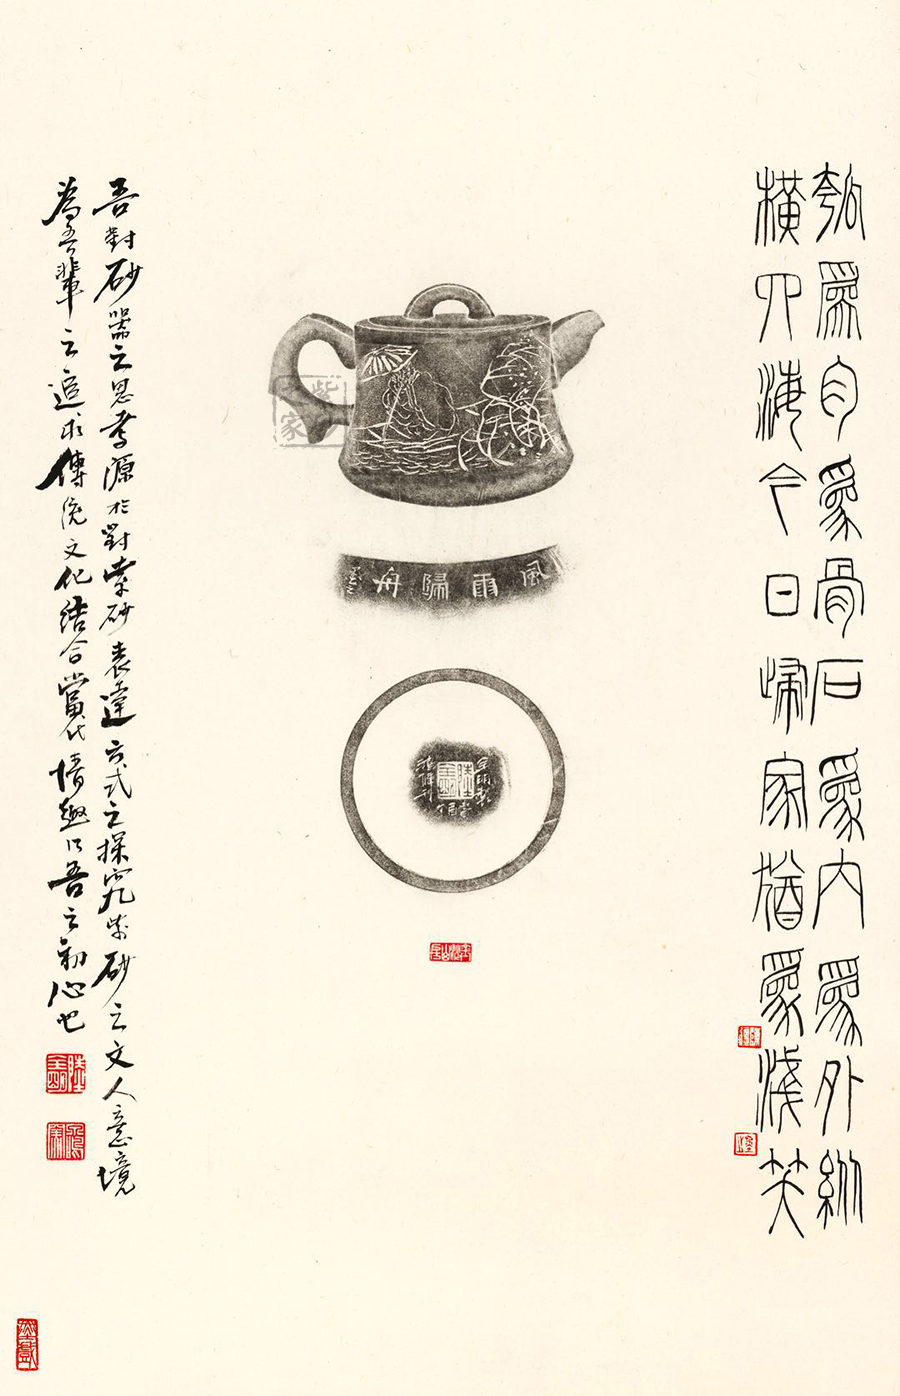 匏爲自爲骨石爲內爲外縱
橫四海今日歸家猶爲淺笑
風雨歸舟
吾對砂器之思考源於對紫砂表達方式之探究紫砂之文人意境
為吾輩之追求傳統文化結合當代情趣乃吾之初心也